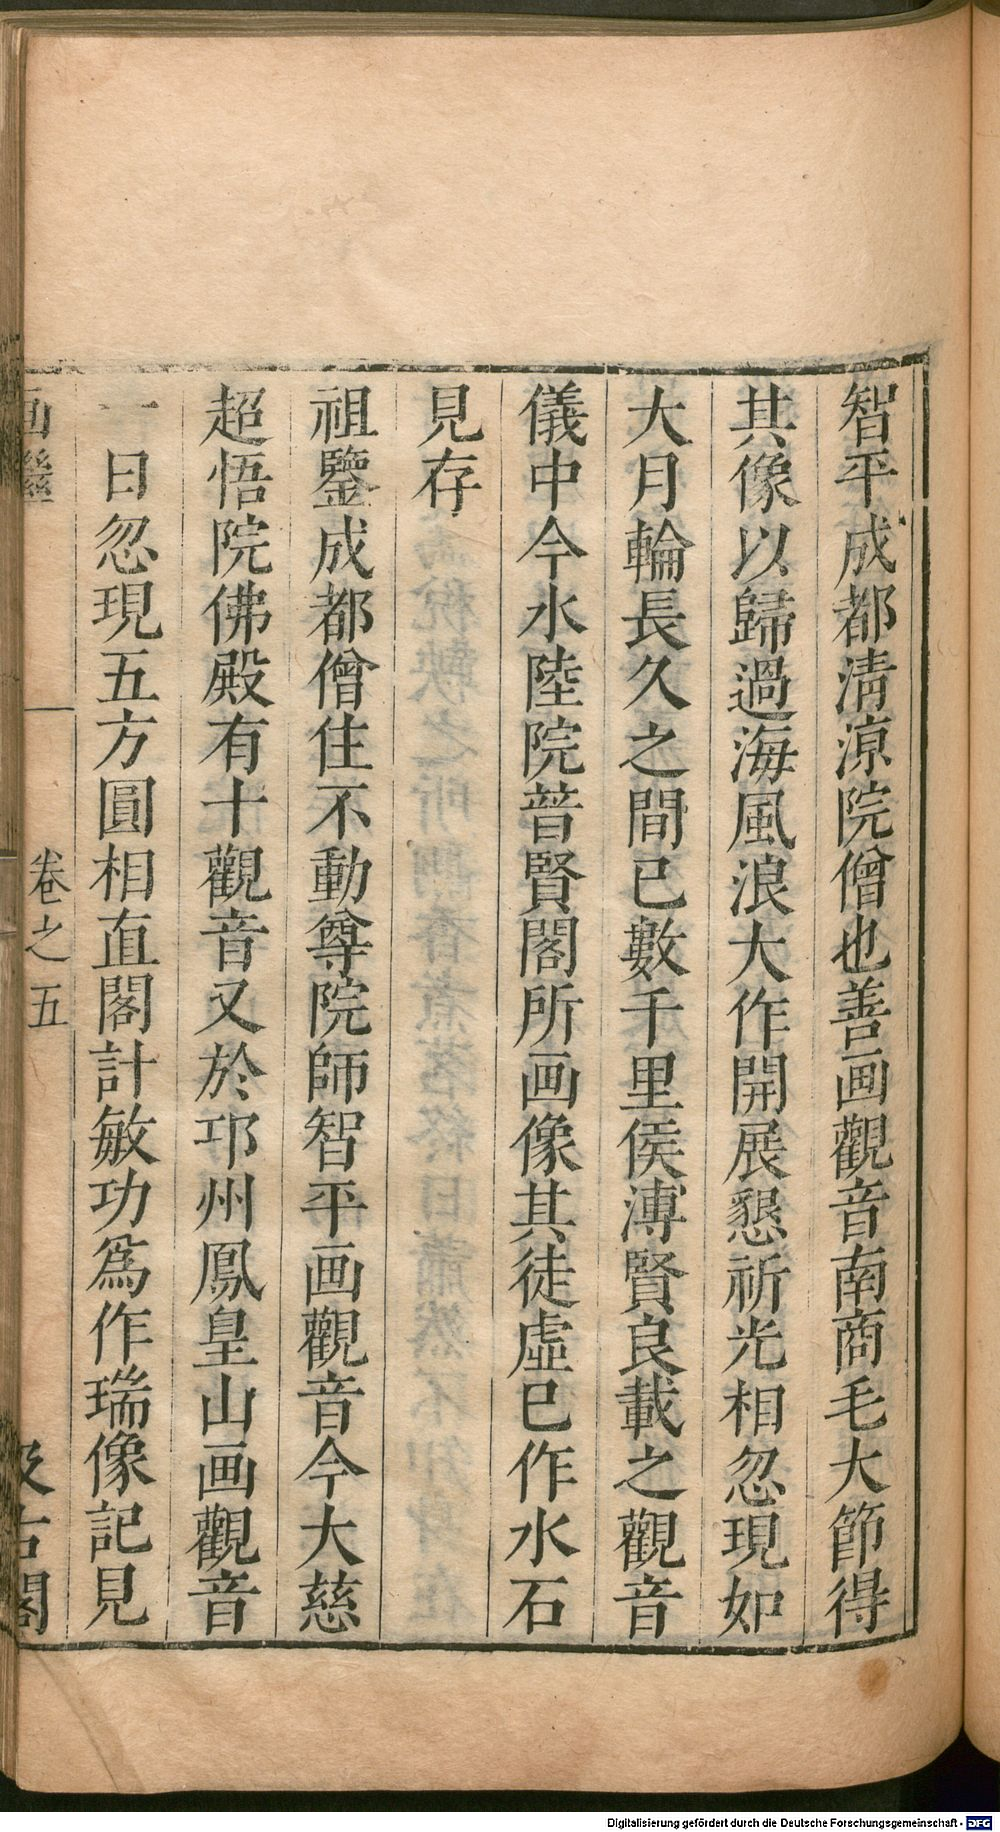 智平成都淸涼院僧也善画觀音南商毛大節得
其像以歸過海風浪大作開展懇祈光相忽現如
大月輪長久之間已數千里侯溥賢良載之觀音
儀中今水陸院普賢閣所画像其徒虛已作水石
見存
祖鑒成都僧住不動尊院師智平画觀音今大慈
超悟院佛殿有十觀音又於邛州鳳皇山画觀音
一日忽現五方圓相直閣計敏功爲作瑞像記見
画繼 卷之五 汲古閣
Digitalisierung gefördert durch die Deutsche Forschungsgemeinschaft - DFG